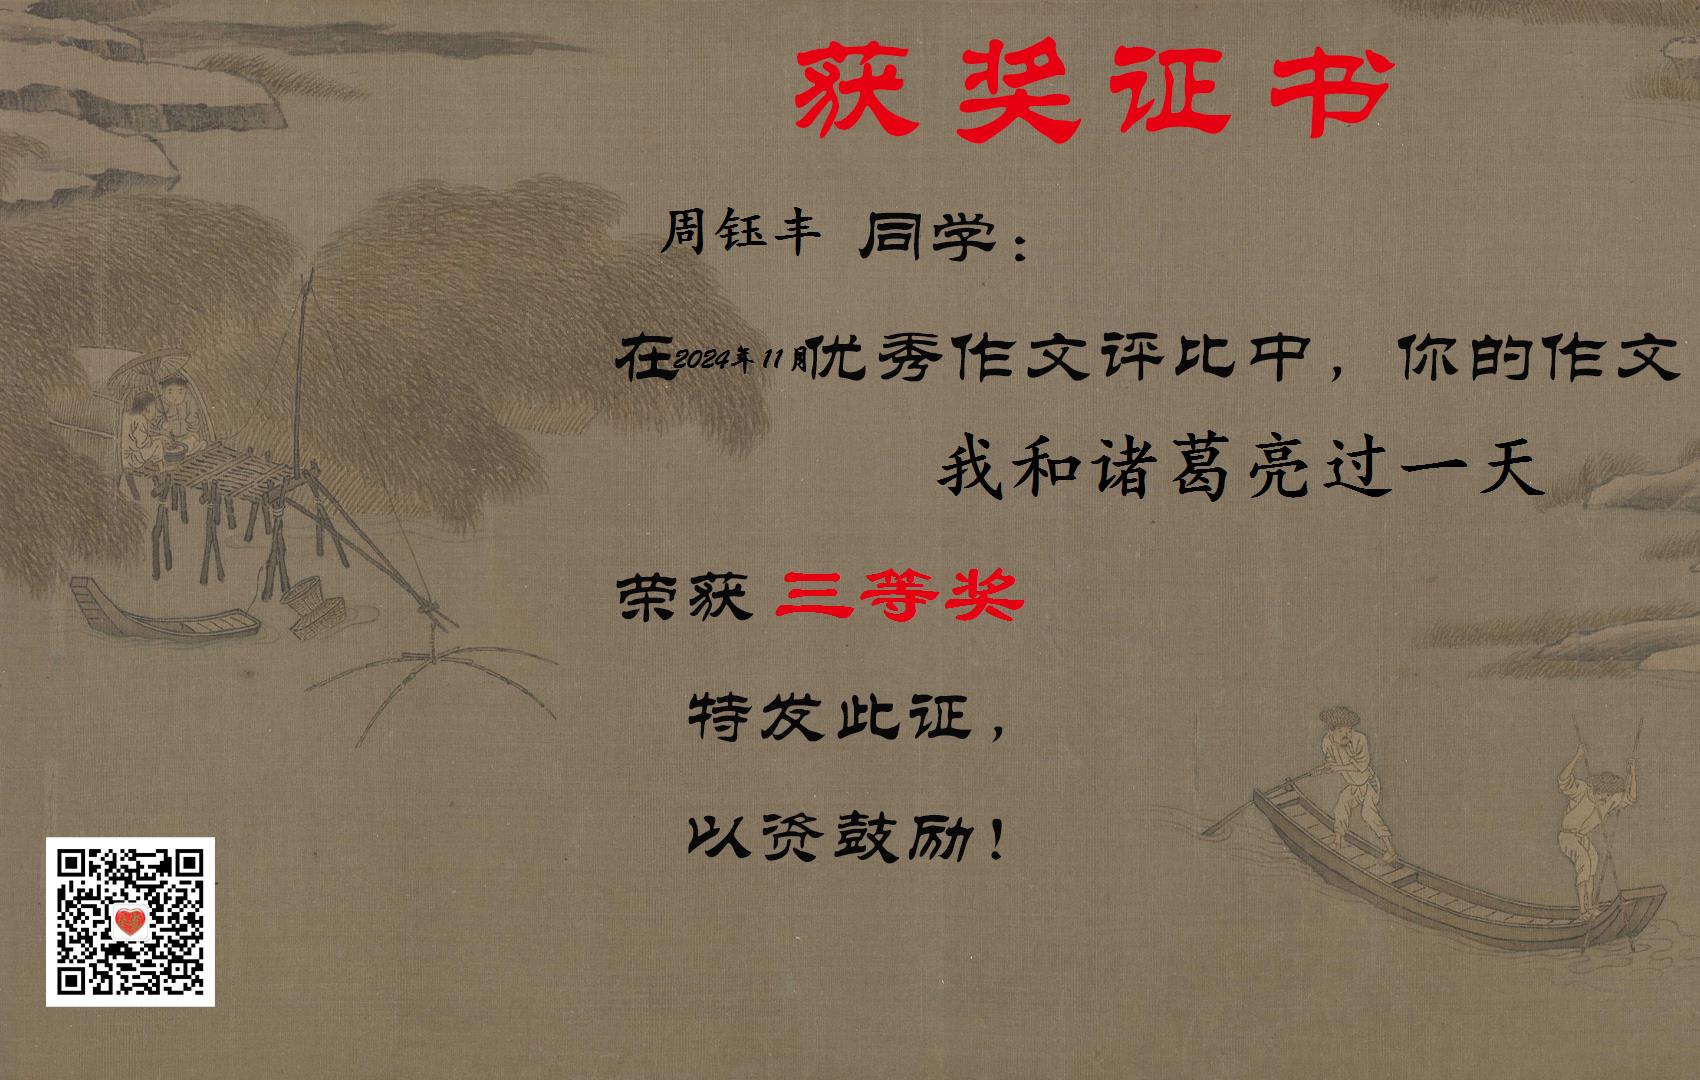 获奖证书
周钰丰 同学：
在2024年11月优秀作文评比中，你的作文
我和诸葛亮过一天
荣获 三等奖
特发此证，
以资鼓励！